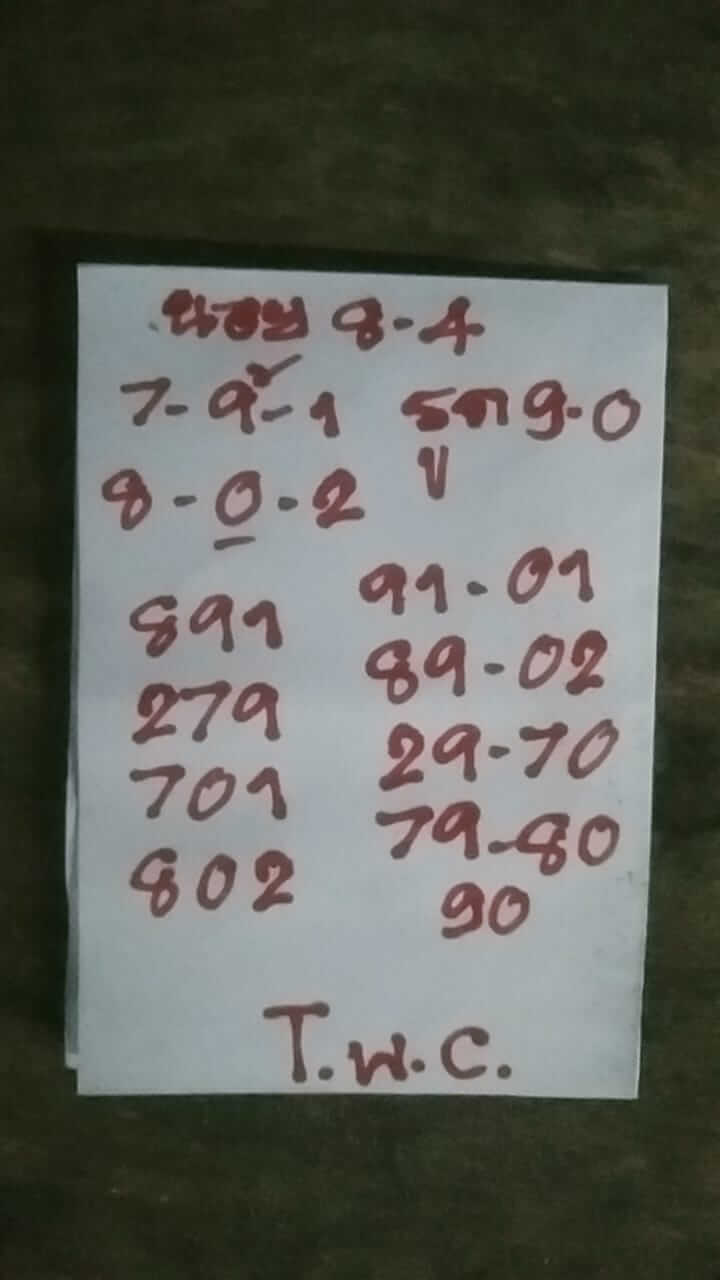 ฮานอย 8-4
7-9-1 รูด 9-0
8-0-2 บ
891 91-01
279 89-02
701 29-70
802 79-80
90
T.W.C.